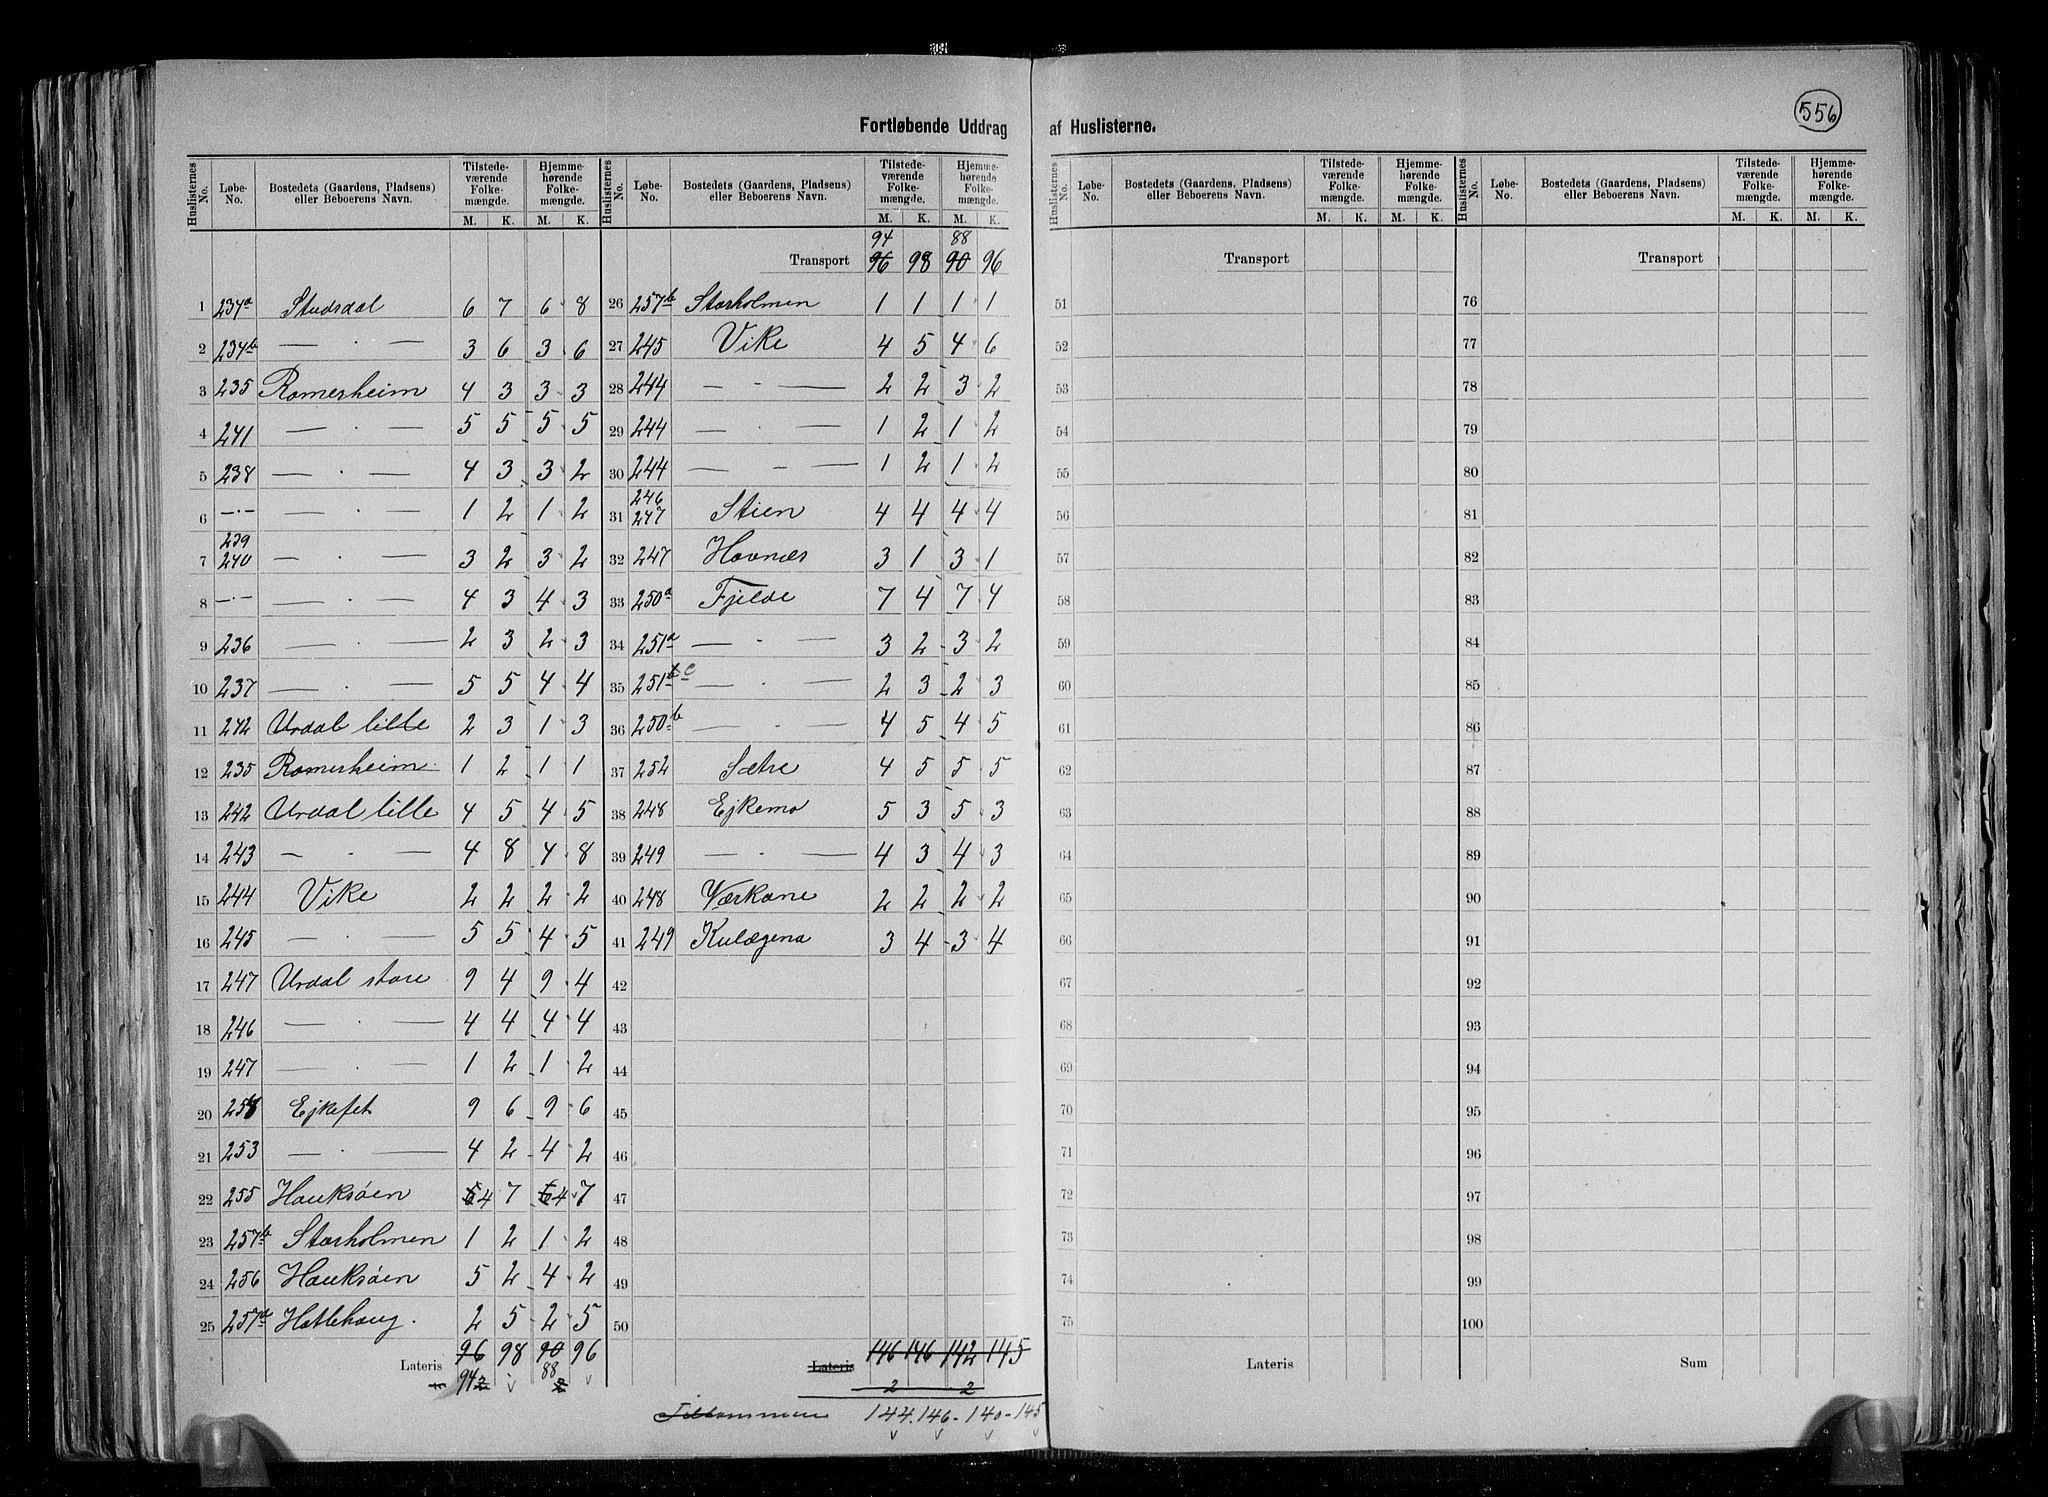 556
Fortløbende Uddrag af Huslisterne.
Huslisternes No. Løbe-No. Bostedets (Gaardens, Pladsens) eller Beboerens Navn. Tilstede-værende Folke-mængde. Hjemme-hørende Folke-mængde. Huslisternes No. Løbe-No. Bostedets (Gaardens, Pladsens) eller Beboerens Navn. Tilstede-værende Folke-mængde. Hjemme-hørende Folke-mængde.
M. K. M. K. M. K. M. K.
94 88
Transport 96 98 90 96
1 234a Studsdal 6 7 6 8 26 257b Storholmen 1 1 1 1
2 234b — · — 3 6 3 6 27 245 Vike 4 5 4 6
3 235 Romerheim 4 3 3 3 28 244 — · — 2 2 3 2
4 241 — · — 5 5 5 5 29 244 — · — 1 2 1 2
5 238 — · — 4 3 3 2 30 244 — · — 1 2 1 2
6 — · — — · — 1 2 1 2 31 246 247 Stien 4 4 4 4
7 239 240 — · — 3 2 3 2 32 247 Hovnæs 3 1 3 1
8 — · — — · — 4 3 4 3 33 250a Fjelde 7 4 7 4
9 236 — · — 2 3 2 3 34 251a — · — 3 2 3 2
10 237 — · — 5 5 4 4 35 251bc — · — 2 3 2 3
11 242 Urdal lille 2 3 1 3 36 250b — · — 4 5 4 5
12 235 Romerheim 1 2 1 1 37 252 Sætre 4 5 5 5
13 242 Urdal lille 4 5 4 5 38 248 Ejkemo 5 3 5 3
14 243 — · — 4 8 4 8 39 249 — · — 4 3 4 3
15 244 Vike 2 2 2 2 40 248 2 2 2 2
16 245 — · — 5 5 4 5 41 249 3 4 3 4
17 247 Urdal store 9 4 9 4 42
18 246 — · — 4 4 4 4 43
19 247 — · — 1 2 1 2 44
20 258 Ejkefet 9 6 9 6 45
21 253 — · — 4 2 4 2 46
22 255 Hauksøen 6 4 7 6 4 7 47
23 257b Storholmen 1 2 1 2 48
24 256 Hauksøen 5 2 4 2 49
25 257a Hatlehaug. 2 5 2 5 50
Lateris 96 98 90 96 Lateris 146 146 142 145
94 2 88 2 2 2
Tilsammen 144. 146 - 140 - 145
Huslisternes No. Løbe-No. Bostedets (Gaardens, Pladsens) eller Beboerens Navn. Tilstede-værende Folke-mængde. Hjemme-hørende Folke-mængde. Huslisternes No. Løbe-No. Bostedets (Gaardens, Pladsens) eller Beboerens Navn. Tilstede-værende Folke-mængde. Hjemme-hørende Folke-mængde.
M. K. M. K. M. K. M. K.
Transport Transport
51 76
52 77
53 78
54 79
55 80
56 81
57 82
58 83
59 84
60 85
61 86
62 87
63 88
64 89
65 90
66 91
67 92
68 93
69 94
70 95
71 96
72 97
73 98
74 99
75 100
Lateris Sum